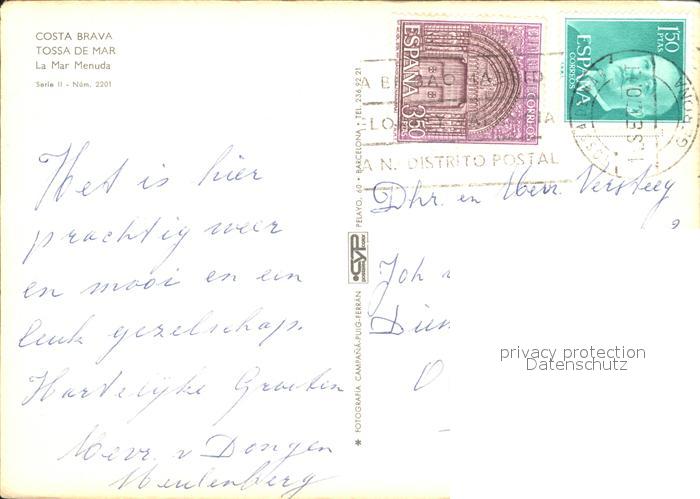 COSTA BRAVA
TOSSA DE MAR
La Mar Menuda
Serie II - Núm. 2201
Het is hier
prachtig weer
en mooi en een
leuk gezelschap.
Hartelijke Groeten
Mevr. v Dongen
Meulenberg
PELAYO, 60 • BARCELONA • TEL. 236 92 21
CYP
* FOTOGRAFÍA CAMPAÑÁ-PUIG-FERRÁN
ESPAÑA
3'50
PTAS
CORREOS
ESPAÑA
CORREOS
1'50
PTAS
A N. DISTRITO POSTAL
GERONA
Dhr. en Mevr. Versteeg
Joh
O
privacy protection
Datenschutz